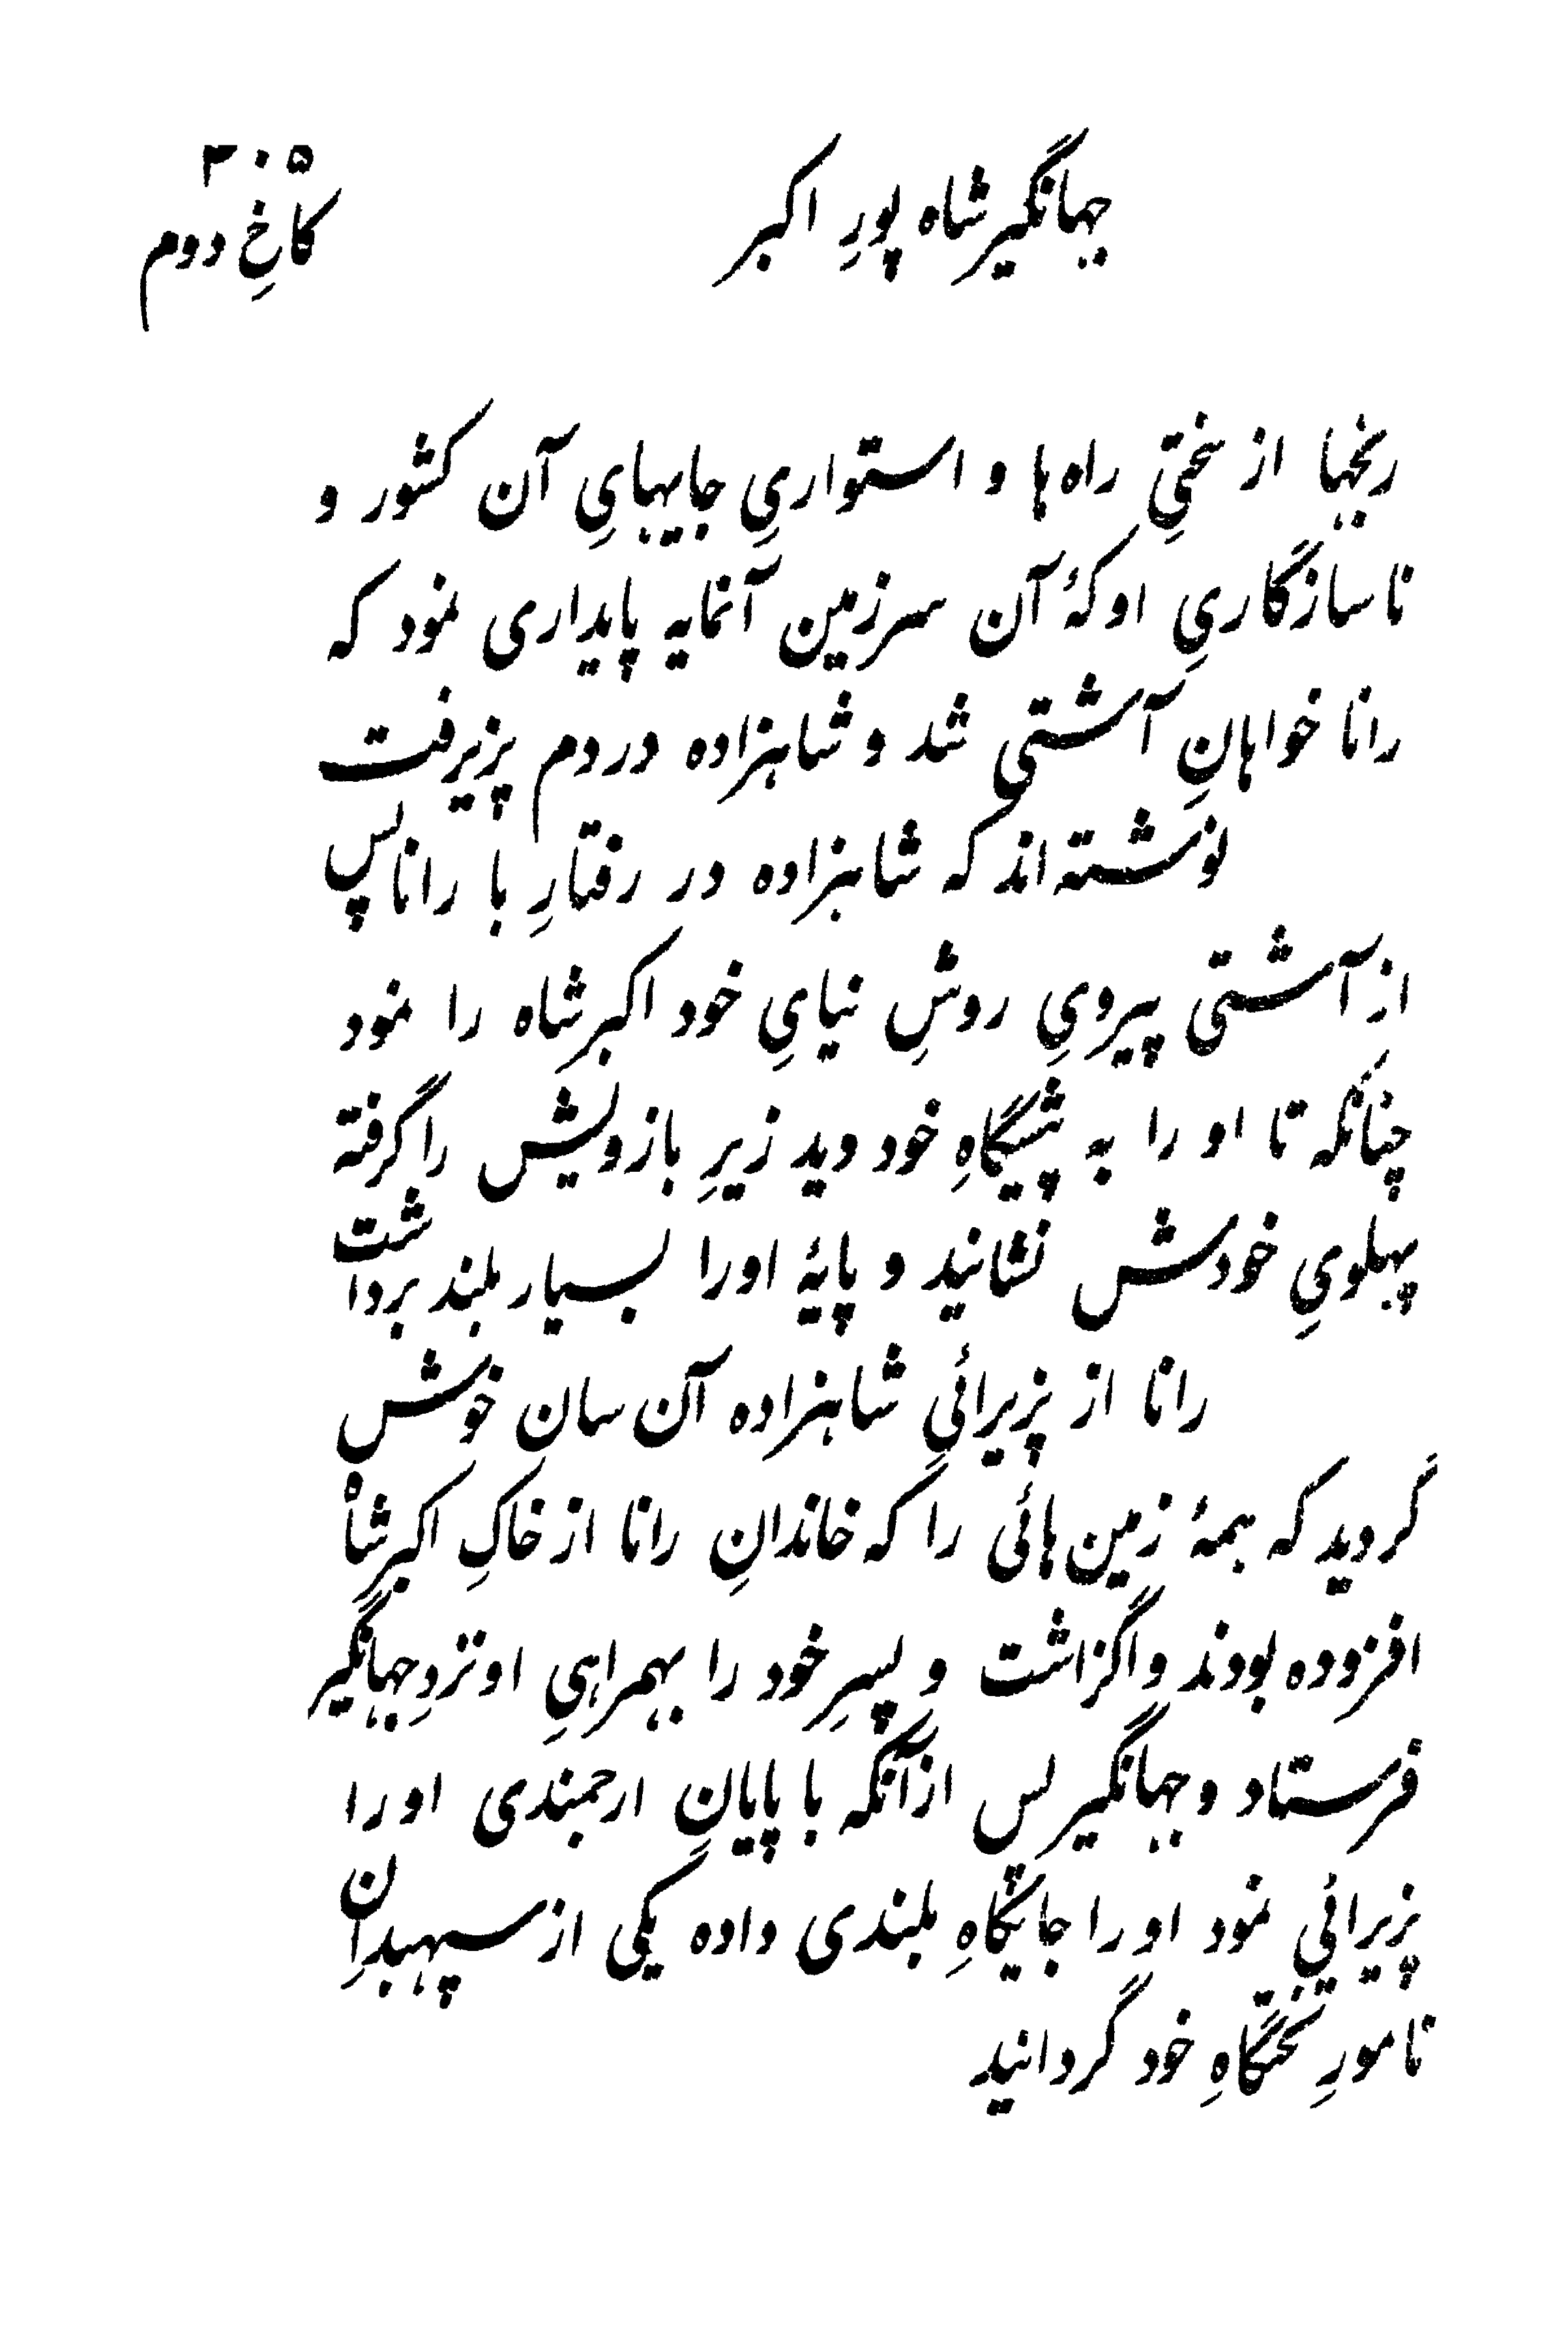 ۳۰۵
جهانگیر شاه پورِ اکبر
کاخِ دوم
رنجها از سختیِ راه ها و استواریِ جایهایِ آن کشور و
ناسازگاریِ اوکهٔ آن سرزمین آنمایه پایداری نمود که
رانا خواهانِ آشتی شد و شاهزاده در دم پزیرفت
نوشته اند که شاهزاده در رفتارِ با رانا پس
از آشتی پیرویِ روشِ نیایِ خود اکبر شاه را نمود
چنانکه تا او را به پیشگاهِ خود دید زیرِ بازویش را گرفته
پهلویِ خودش نشانید و پایهٔ اورا بسیار بلند برداشت
رانا از پزیرائیِ شاهزاده آن سان خوش
گردید که همهٔ زمین هائی را که خاندانِ رانا از خاکِ اکبر شاه
افزوده بودند واگزاشت و پسرِ خود را بهمراهیِ او نزدِ جهانگیر
فرستاد و جهانگیر پس از آنکه با پایانِ ارجمندی او را
پزیرائی نمود او را جایگاهِ بلندی داده یکی از سپهبدانِ
نامورِ تختگاهِ خود گردانید